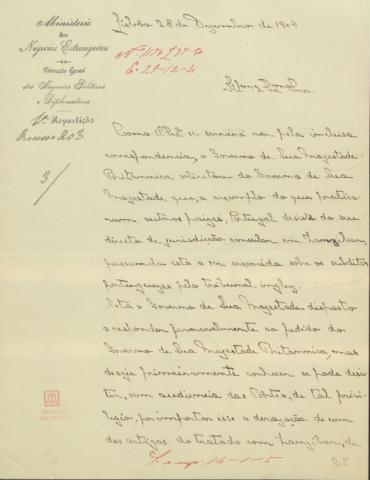 Ministerio
dos
Negocios Estrangeiros
Direcção Geral
dos Negocios Politicos
e Diplomaticos
1ª Repartição
Processo 203
3/
Lisboa 28 de Dezembro de 1904
E. 29-12-4
Como V. Exª se servirá ver pela inclusa
correspondencia, o Governo de Sua Magestade
Britannica solicitou do Governo de Sua
Magestade que, a exemplo do que pratica
ram outros paizes, Portugal desista do seu
direito de jurisdicção consular em Zanzibar,
passando esta a ser exercida sobre os subditos
portuguezes pelo tribunal inglez.
Está o Governo de Sua Magestade disposto
a responder favoravelmente ao pedido do
Governo de Sua Magestade Britannica, mas
deseja primeiramente conhecer se pode desis
tir, sem audiencia das Côrtes, de tal privi-
legio, por importar isso a derogação de um
dos artigos do tratado com Zanzibar, de
25